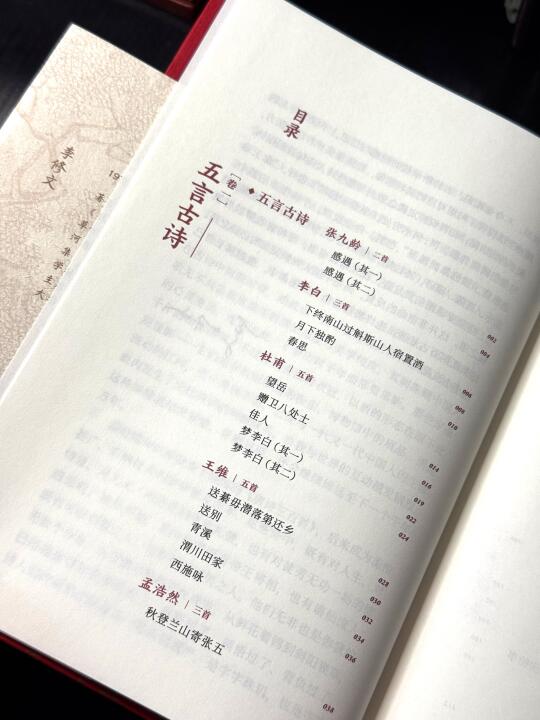 目录
五言古诗
[卷一]
◆五言古诗
张九龄|二首
感遇(其一) 002
感遇(其二) 004
李白|三首
下终南山过斛斯山人宿置酒 006
月下独酌 008
春思 010
杜甫|五首
望岳 014
赠卫八处士 016
佳人 019
梦李白(其一) 022
梦李白(其二) 024
王维|五首
送綦毋潜落第还乡 028
送别 030
青溪 032
渭川田家 034
西施咏 036
孟浩然|三首
秋登兰山寄张五 038
李修文
19